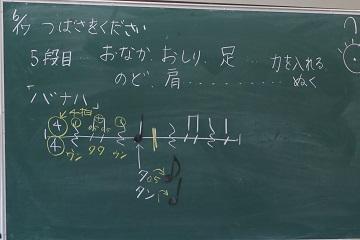 6/17 つばさをください
5段目…おなか、おしり、足 … 力を入れる
のど、肩 ………… ぬく
「バナハ」
4
4
ウン タタ ウン
タ 0.5
タン 1